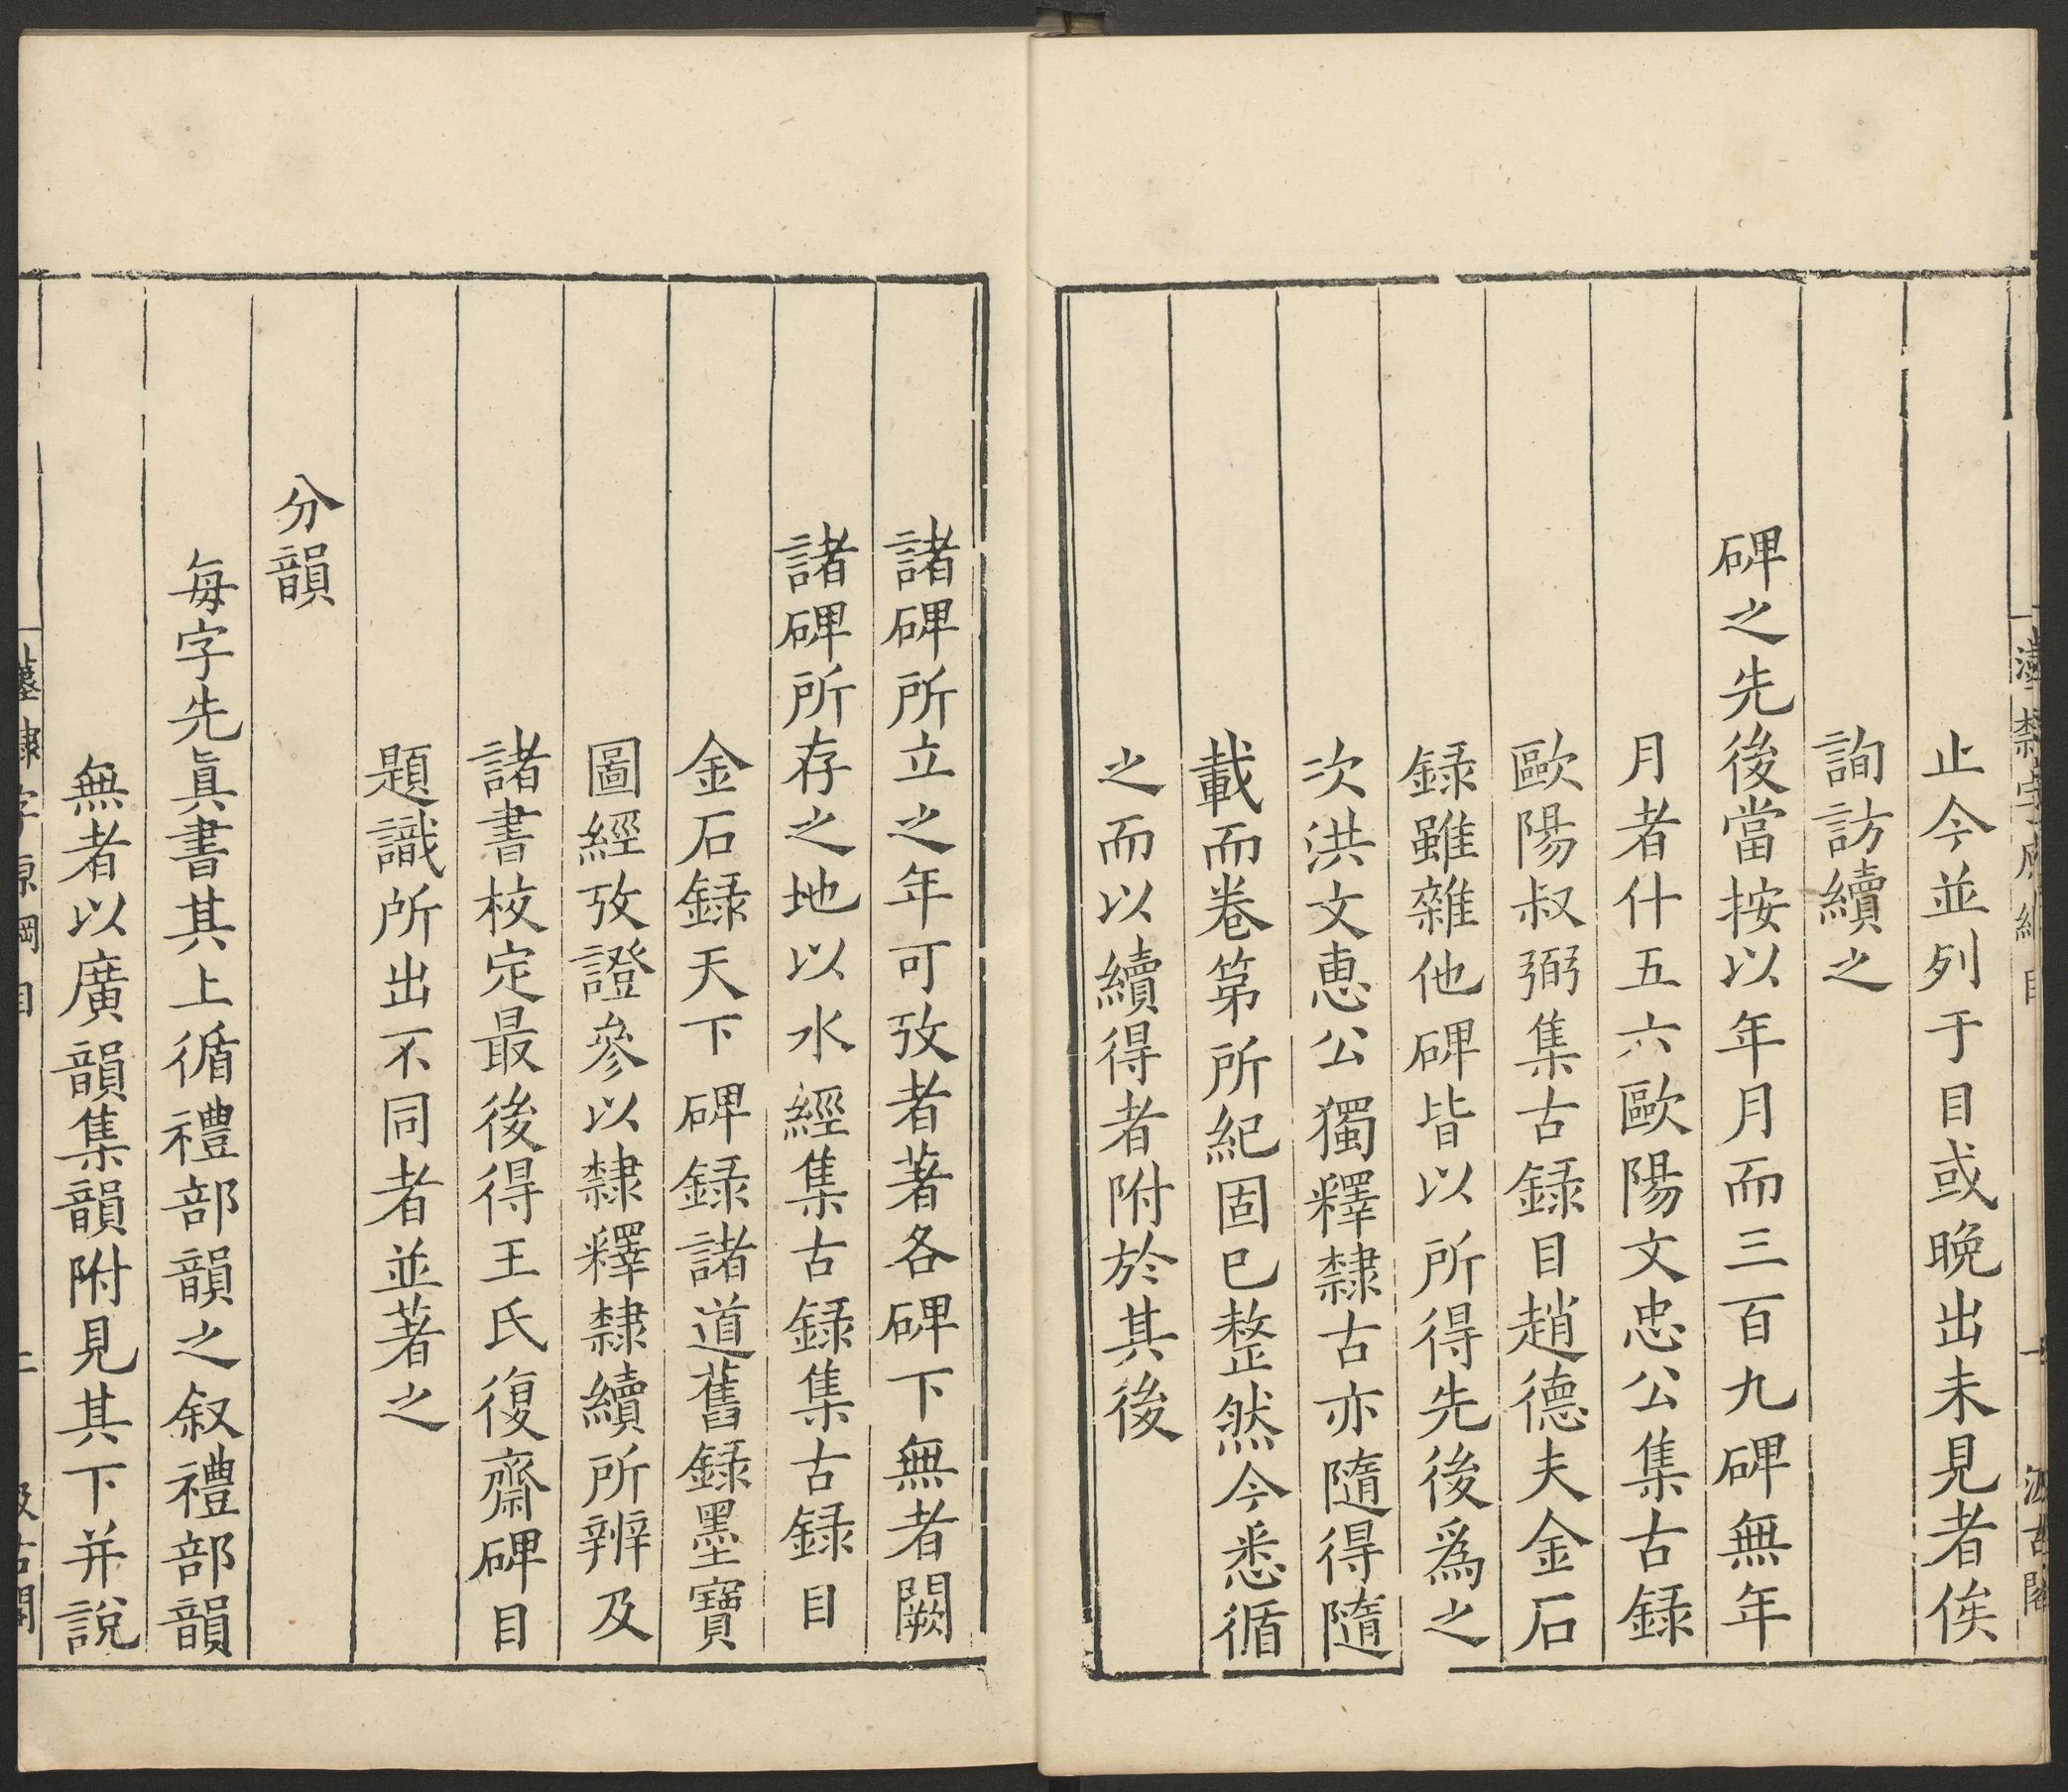 止今並列于目或晚出未見者俟
詢訪續之
碑之先後當按以年月而三百九碑無年
月者什五六歐陽文忠公集古録
歐陽叔弼集古録目趙德夫金石
録雖雜他碑皆以所得先後爲之
次洪文惠公獨釋隸古亦隨得隨
載而卷第所紀固已整然今悉循
之而以續得者附於其後
諸碑所立之年可攷者著各碑下無者闕
諸碑所存之地以水經集古録集古録目
金石録天下碑録諸道舊録墨寶
圖經攷證參以隸釋隸續所辨及
諸書校定最後得王氏復齋碑目
題識所出不同者並著之
分韻
每字先眞書其上循禮部韻之叙禮部韻
無者以廣韻集韻附見其下并說